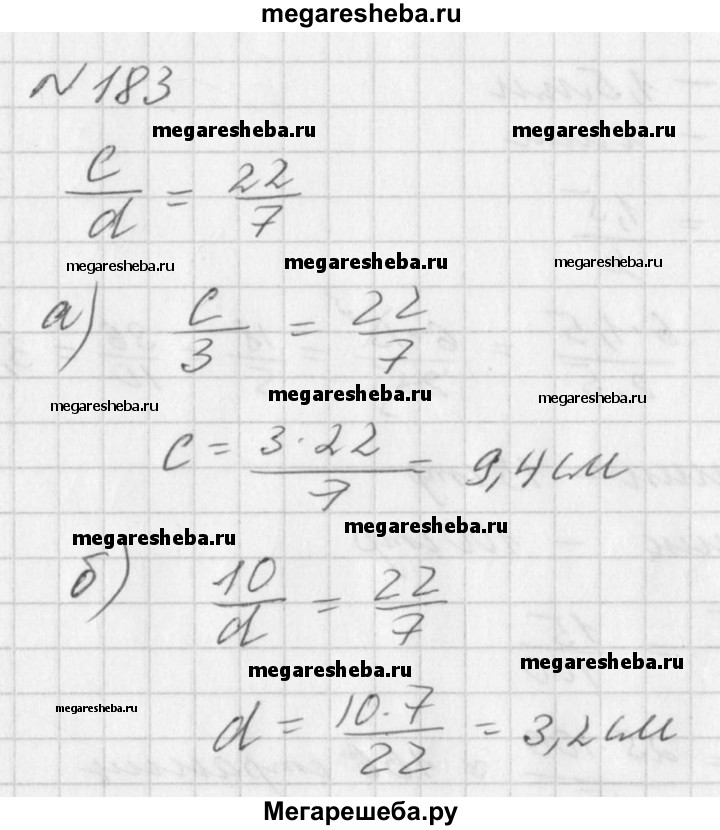 megaresheba.ru
№ 183
megaresheba.ru megaresheba.ru
c/d = 22/7
megaresheba.ru megaresheba.ru megaresheba.ru
а) c/3 = 22/7
megaresheba.ru megaresheba.ru megaresheba.ru
c = 3·22/7 = 9,4 см
megaresheba.ru megaresheba.ru
б) 10/d = 22/7
megaresheba.ru megaresheba.ru megaresheba.ru
d = 10·7/22 = 3,2 см
Мегарешеба.ру